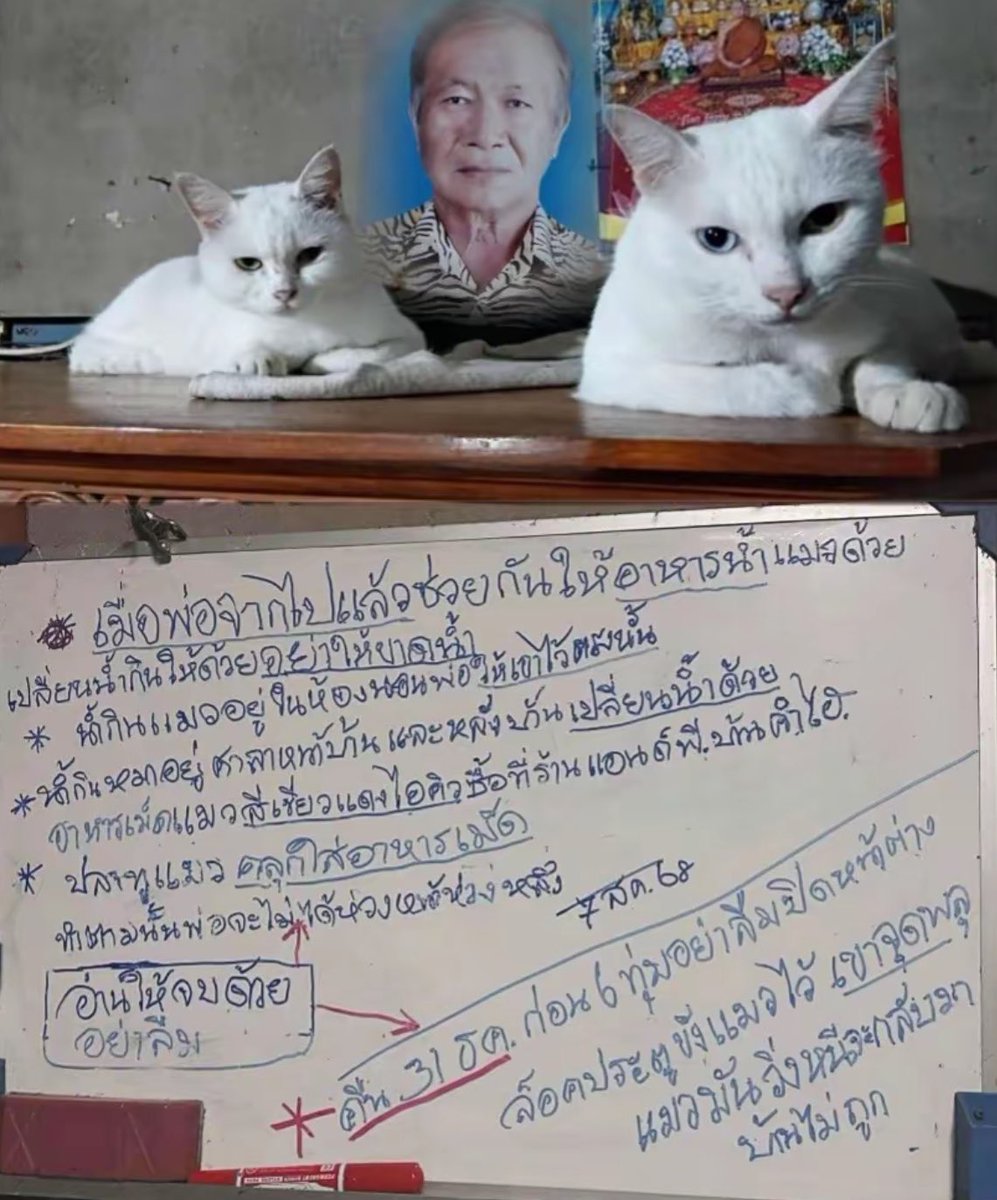 เมื่อพ่อจากไปแล้วช่วยกันให้อาหารน้ำแมวด้วย
เปลี่ยนน้ำกินให้ด้วยอย่าให้ขาดน้ำ
* น้ำกินแมวอยู่ในห้องนอนพ่อให้เอาไว้ตรงนั้น
* น้ำกินหมาอยู่ศาลาหน้าบ้านและหลังบ้านเปลี่ยนน้ำด้วย
อาหารเม็ดแมวสีเขียวแดงไอคิวซื้อที่ร้านแอนด์พี.บ้านคำไฮ.
* ปลาทูแมว คลุกใส่อาหารเม็ด
ทำตามนั้นพ่อจะไม่ได้ห่วงหน้าห่วงหลัง
7 สค. 68
อ่านให้จบด้วย
อย่าลืม
* คืน 31 ธค. ก่อน 6 ทุ่มอย่าลืมปิดหน้าต่าง
ล็อคประตูขังแมวไว้ เขาจุดพลุ
แมวมันวิ่งหนีจะกลับมา
บ้านไม่ถูก